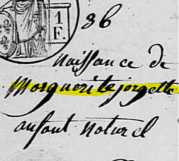 1
F.
86
naissance de
Marguerite jorgette
enfant naturel